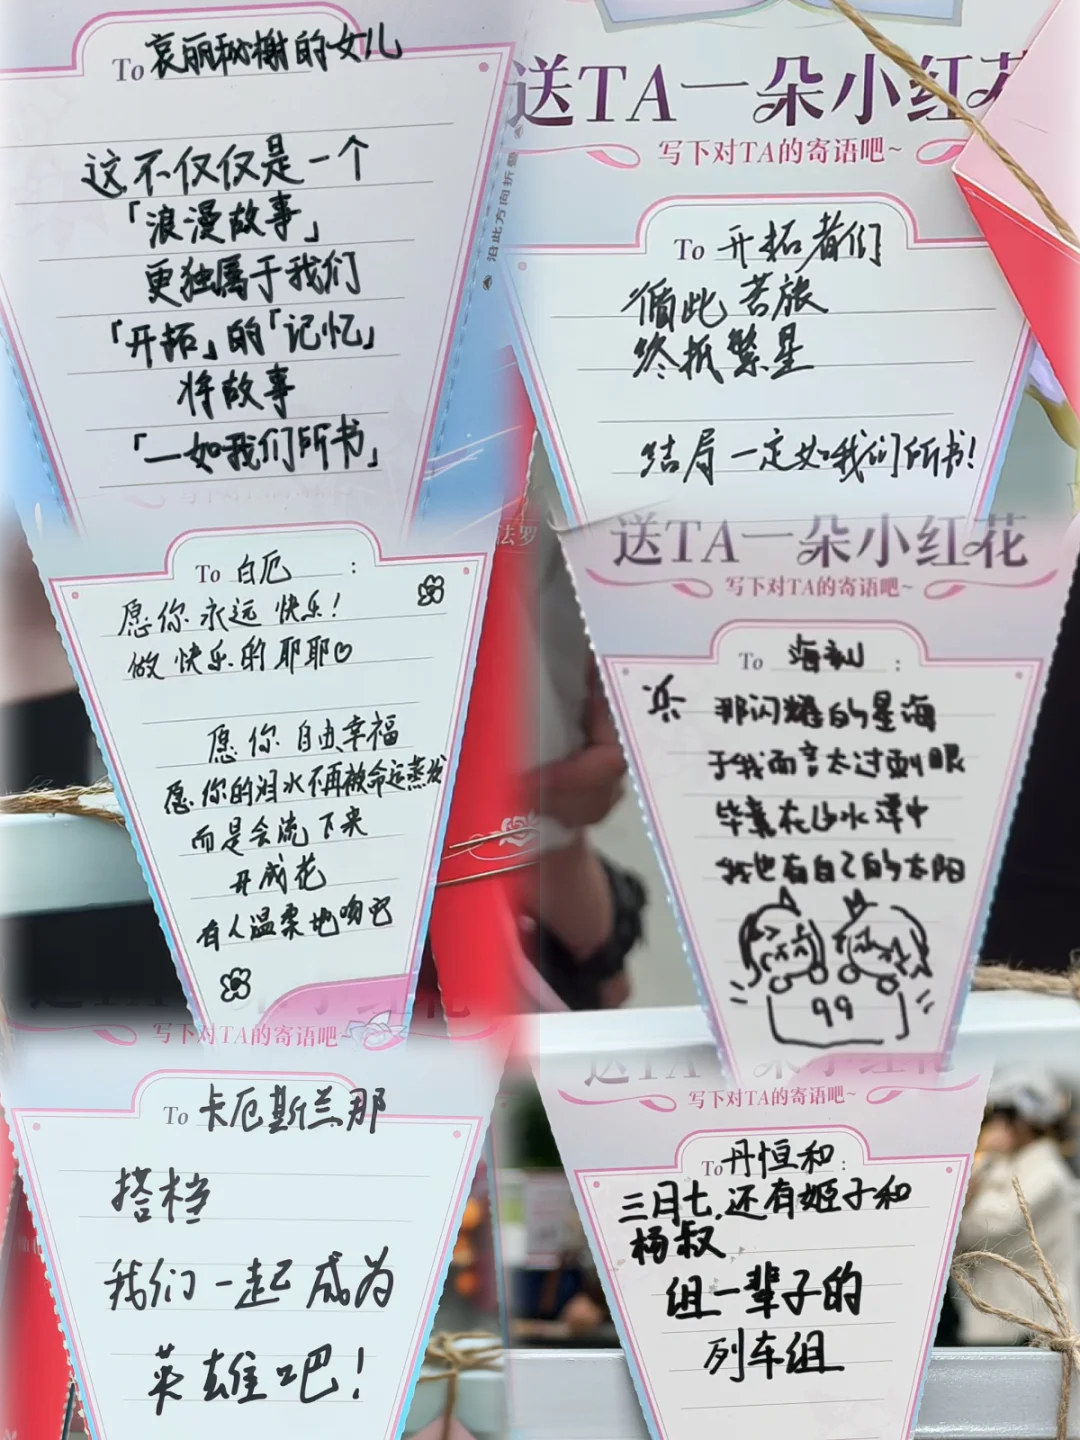 To 哀丽秘榭的女儿
这不仅仅是一个
「浪漫故事」
更独属于我们
「开拓」的「记忆」
将故事
「一如我们所书」
沿此方向折叠
送TA一朵小红花
写下对TA的寄语吧~
To 开拓者们
循此苦旅
终抵繁星
结局一定如我们所书!
To 白厄 :
愿你永远快乐!
做快乐的耶耶♡
愿你自由幸福
愿你的泪水不再被命运蒸发
而是会流下来
开成花
有人温柔地吻它
法罗
送TA一朵小红花
写下对TA的寄语吧~
To 海瑟 :
那闪耀的星海
于我而言太过刺眼
毕竟在山水潭中
我也有自己的太阳
99
写下对TA的寄语吧~
To 卡厄斯兰那
搭档
我们一起成为
英雄吧!
送TA一朵小红花
写下对TA的寄语吧~
To 丹恒和 :
三月七,还有姬子和
杨叔
组一辈子的
列车组